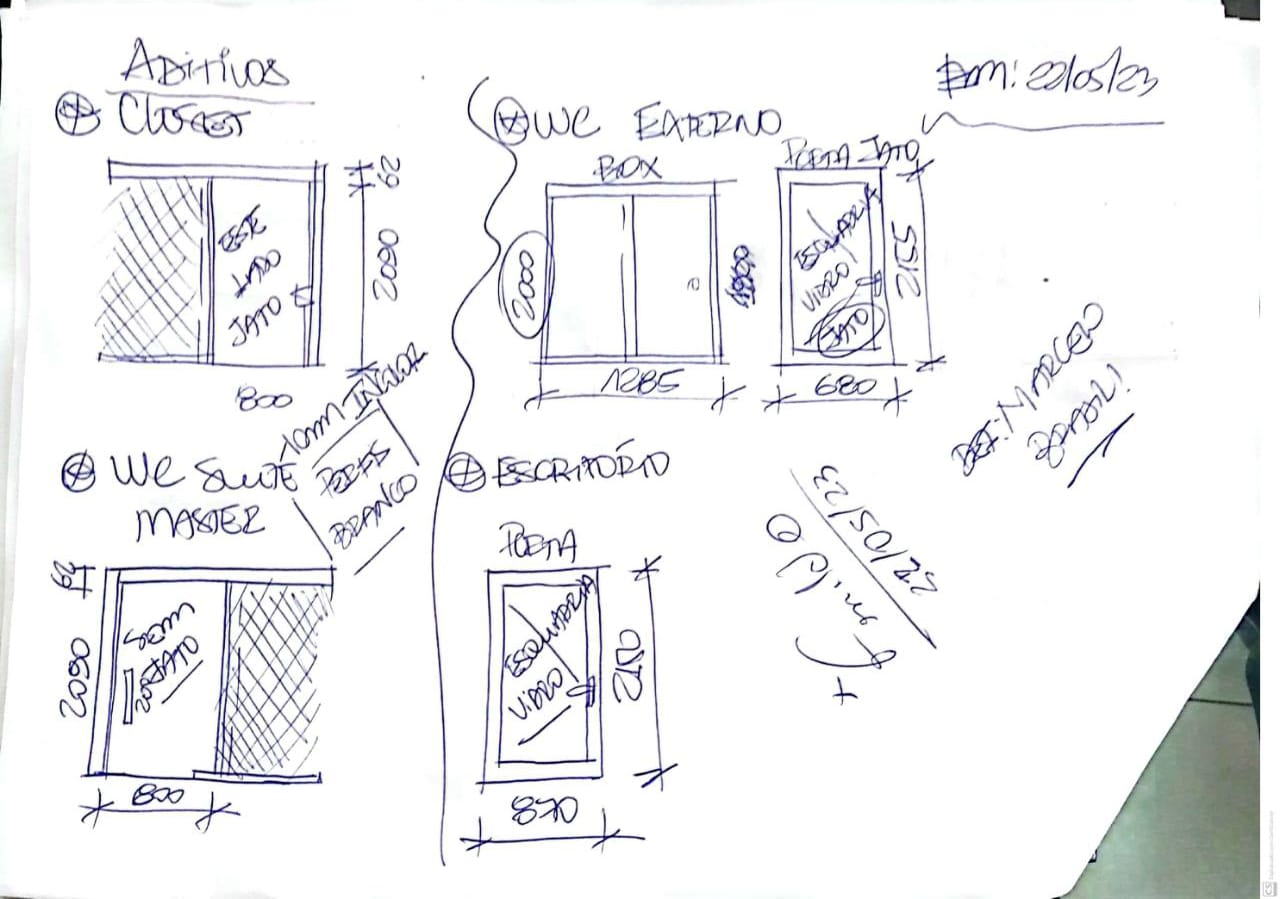 ADITIVOS
CLOSET
62
2090
ESTE
LADO
JATO
800
WC SUITE
MASTER
10mm INCOLOR
PERFIS
BRANCO
62
2090
SEM
JATO
800
EM: 22/05/23
WC EXTERNO
BOX
2000
1285
PORTA JATO
ESQUADRIA
VIDRO
JATO
680
ESCRITÓRIO
PORTA
ESQUADRIA
VIDRO
2150
870
BRASIL!
22/05/23